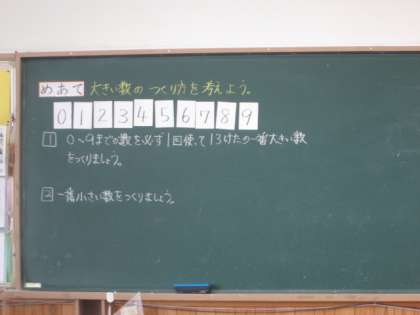 めあて 大きい数のつくり方を考えよう。
0 1 2 3 4 5 6 7 8 9
1 0〜9までの数を必ず1回使って13けたの一番大きい数
をつくりましょう。
2 一番小さい数をつくりましょう。